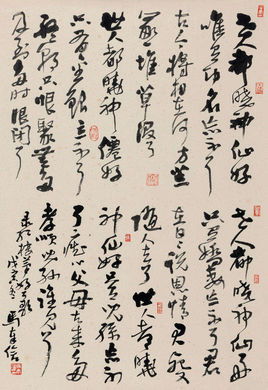 世人都晓神仙好
唯有功名忘不了
古今将相在何方荒
冢一堆草没了
世人都晓神仙好
只有金银忘不了
终朝只恨聚无多
及到多时眼闭了
世人都晓神仙好
只有姣妻忘不了君
生日日说恩情君死又
随人去了世人都晓
神仙好只有儿孙忘不
了痴心父母古来多
孝顺儿孙谁见了
录红楼梦好了歌